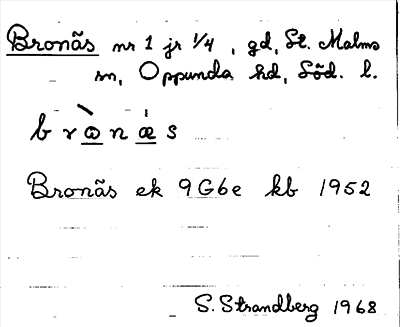 Bronäs nr 1 jr 1/4, gd, St. Malms
sn, Oppunda hd, Söd. l.
b r ò n æ s
Bronäs ek 9G6e kb 1952
S. Strandberg 1968